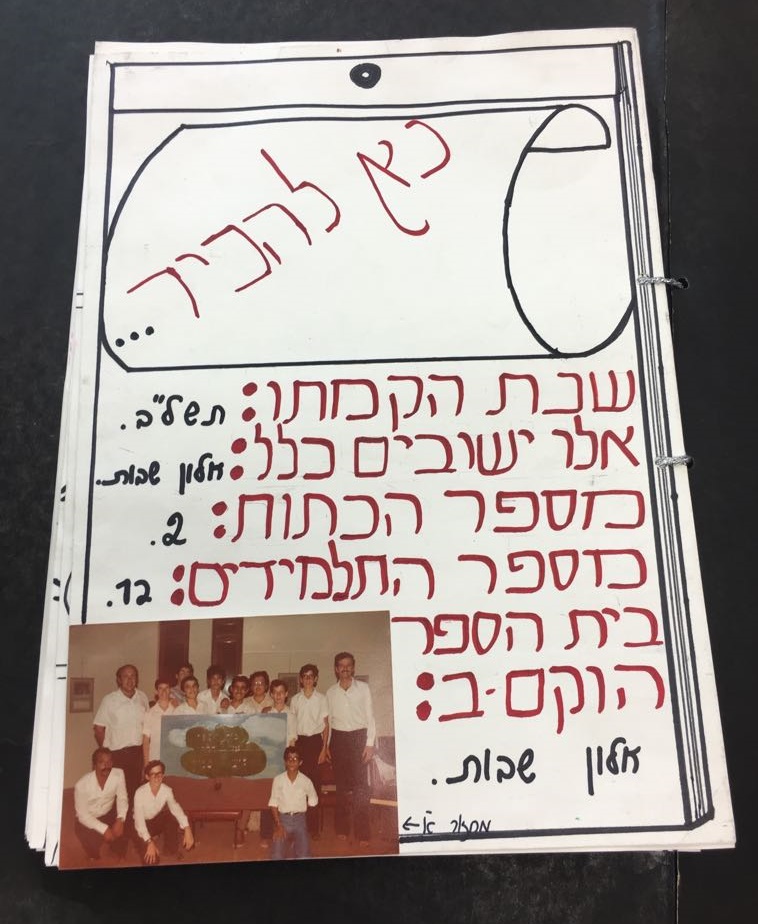 נא להכיר...
שנת הקמתו: תשל"ב.
אלו ישובים כלל: אלון שבות.
מספר הכתות: 2.
מספר התלמידים: 12.
בית הספר
הוקם-ב:
אלון שבות.
מחזור א' ←